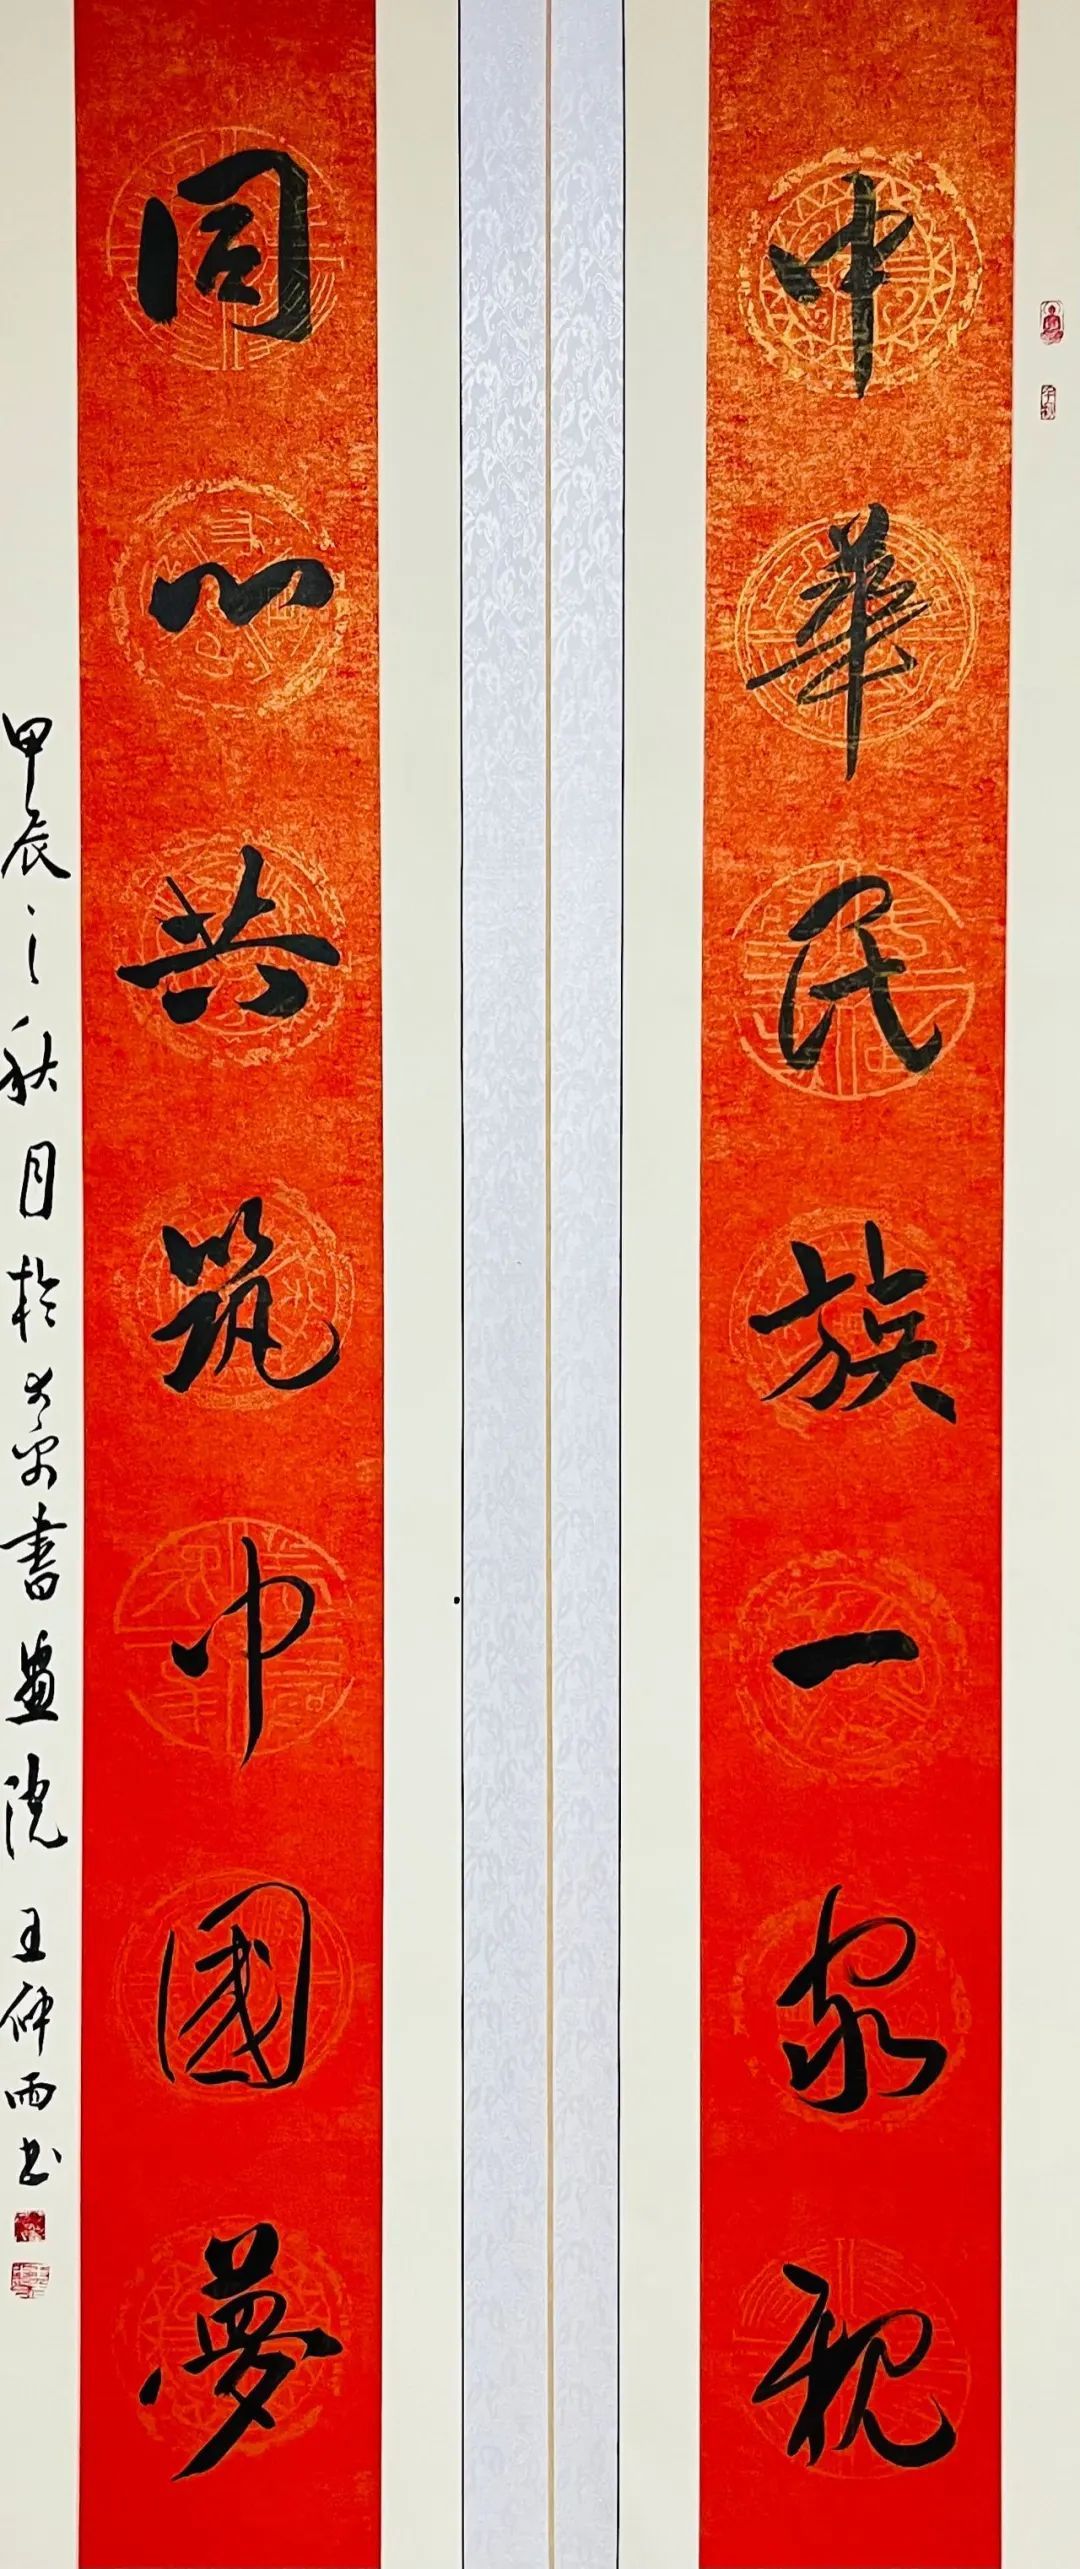 中華民族一家親
同心共筑中國夢
甲辰之秋月於
書畫院 王仲西书